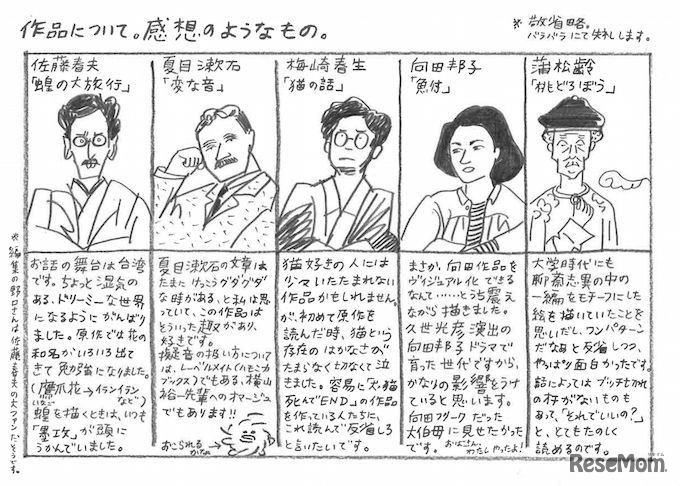 作品について。感想のようなもの。
※敬省略。
バラバラにて失礼します。
佐藤春夫
「蝗の大旅行」
お話の舞台は台湾
です。ちょっと湿気の
ある、ドリーミーな世界
になるようにがんば
りました。原作では花の
和名がいろいろ出て
きて勉強になりました。
(鷹爪花→イランイラン
など)
蝗を描くときは、いつも
いなご
「墨攻」が頭に
うかんでいました。
※編集の野さんは佐藤春夫の大ファンだそうです。
夏目漱石
「変な音」
夏目漱石の文章は
たまにけっこうグダグダ
な時がある、と私は思
っていて、この作品は
そういった趣があり、
好きです。
擬音の扱い方について
は、レーベルメイト(ハモニカ
ブックス)でもある、横山
裕一先輩へのオマージュ
でもあります!!
おこられる
かなぁ
梅崎春生
「猫の話」
猫好きの人には
少々いたたまれない
作品かもしれません
が、初めて原作を
読んだ時、猫という
存在のはかなさが
たまらなく切なくて泣
きました。容易に「犬・猫
死んでEND」の作品
を作っている人たちに、
これ読んで反省しろ
と言いたいです。
向田邦子
「魚付」
まさか、向田作品を
ヴィジュアル化できる
なんて……とうち震え
ながら描きました。
久世光彦演出の
向田邦子ドラマで
育った世代ですから、
かなりの影響をうけ
ていると思います。
向田フリークだった
大伯母に見せたかった
おばさん
です。
わたしやったよ!
蒲松齢
「桃どろぼう」
大学時代にも
聊斎志異の中の
一編をモチーフにした
絵を描いていたことを
思いだし、ワンパターン
だなあと反省しつつ、
やっぱり面白かったです。
話によってはブッチぎれか
の存がないものも
あって、「それでいいの?」
と、とてもたのしく
読めるのです。
ReseMom.